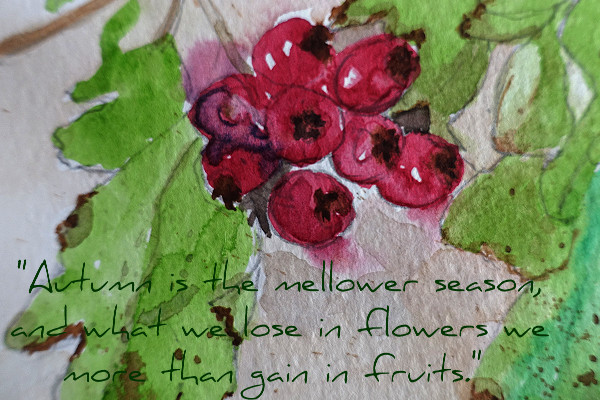 "Autumn is the mellower season,
and what we lose in flowers we
more than gain in fruits."